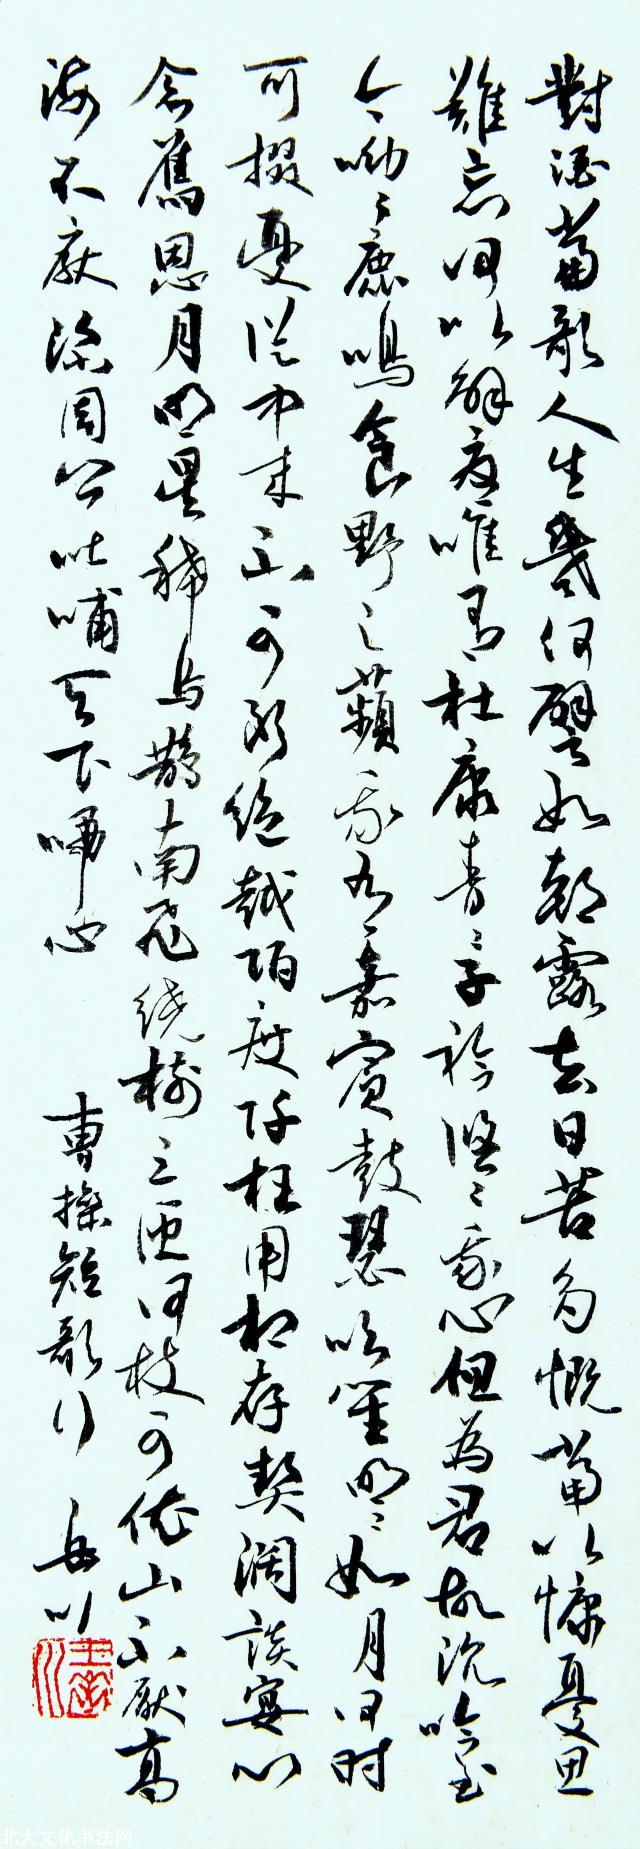 對酒當歌人生幾何譬如朝露去日苦多慨當以慷憂思
難忘何以解憂唯有杜康青々子衿悠々我心但為君故沉吟至
今呦々鹿鳴食野之蘋我有嘉賓鼓瑟吹笙明々如月何時
可掇憂從中來不可斷絕越陌度阡枉用相存契闊談宴心
念舊恩月明星稀烏鵲南飛繞樹三匝何枝可依山不厭高
海不厭深周公吐哺天下歸心 曹操短歌行 岳川
北大文化书法网